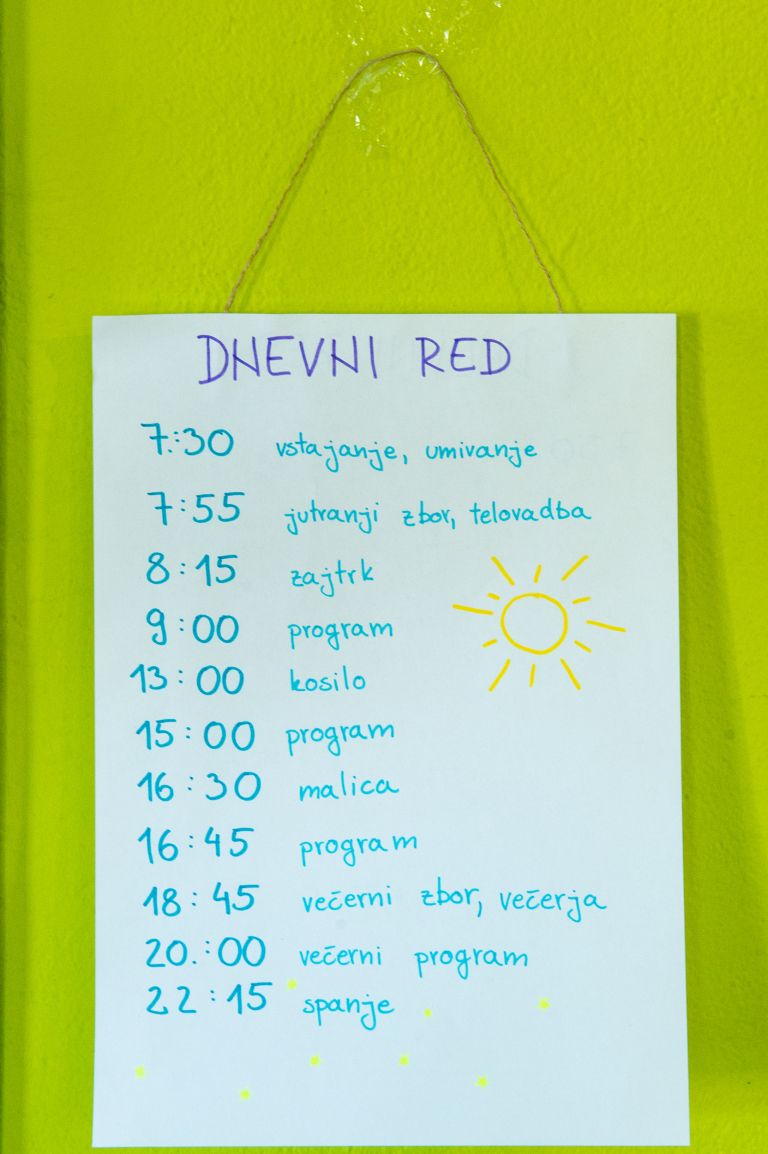 DNEVNI RED
7:30 vstajanje, umivanje
7:55 jutranji zbor, telovadba
8:15 zajtrk
9:00 program
13:00 kosilo
15:00 program
16:30 malica
16:45 program
18:45 večerni zbor, večerja
20.:00 večerni program
22:15 spanje